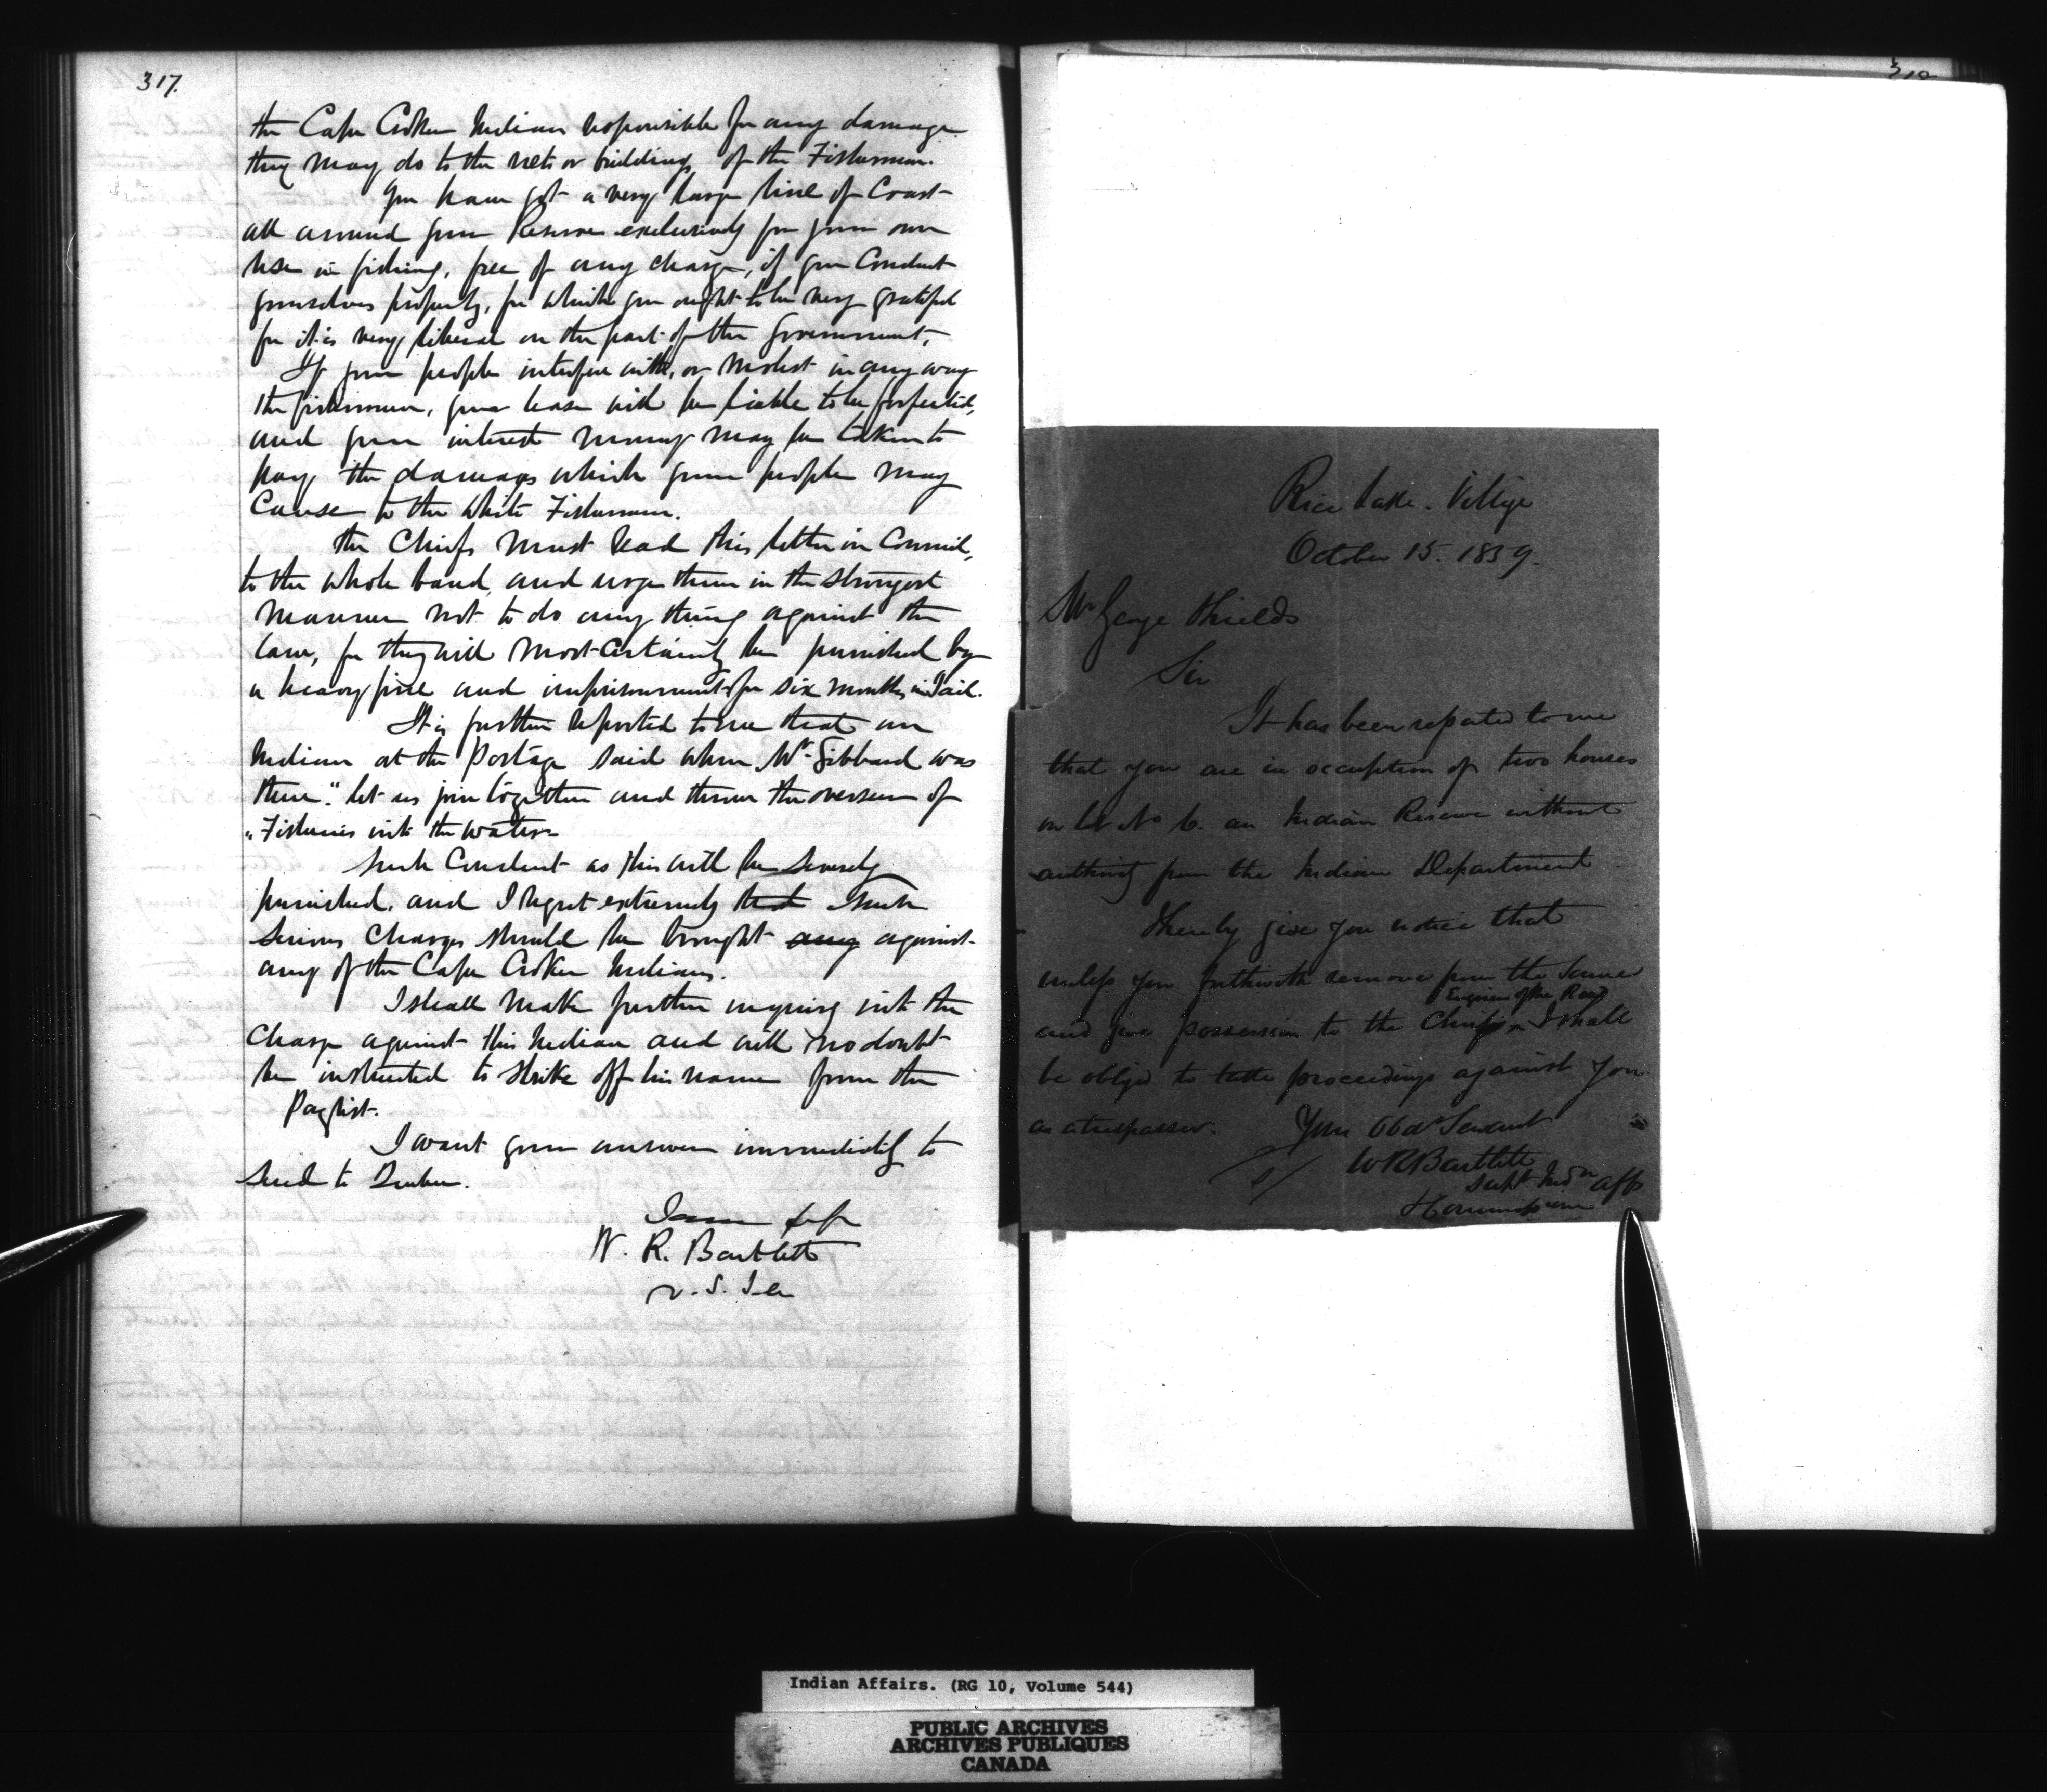 317.
the Cape Croker Indians responsible for any damage
they may do to the nets or buildings of the Fishermen.
You have got a very large line of Coast
all around your Reserve exclusively for your own
use in fishing, free of any charge, if you Conduct
yourselves properly, for which you ought to be very grateful
for it is very liberal on the part of the Government.
If your people interfere with, or molest in any way
the fishermen, your lease will be liable to be forfeited,
and your interest money may be taken to
pay the damages which your people may
Cause to the White Fishermen.
The Chiefs must read this letter in Council,
to the whole band, and urge them in the strongest
manner not to do any thing against the
law, for they will most certainly be punished by
a heavy fine and imprisonment for six months in Jail.
It is further reported to me that an
Indian at the Portage said when Mr. Gibbard was
there "let us join together and throw the overseer of
"Fisheries into the water
Such Conduct as this will be severely
punished, and I regret extremely that such
serious Charges should be brought any against
any of the Cape Croker Indians.
I shall make further inquiry into the
Charge against this Indian and will no doubt
be instructed to strike off his name from the
Paylist.
I want your answer immediately to
send to Quebec.
W. R. Bartlett
v. S. I. a
Rice Lake Village
October 15. 1859.
Mr George Shields
Sir
It has been reported to me
that you are in occupation of two houses
on lot No 6. an Indian Reserve without
authority from the Indian Department
I hereby give you notice that
unless you forthwith remove from the same
Engineer of the Road
and give possession to the Chief or I shall
be obliged to take proceedings against you
as a trespasser. Your Obdt Servant
W R Bartlett
Supt Indn Affs
Indian Affairs. (RG 10, Volume 544)
PUBLIC ARCHIVES
ARCHIVES PUBLIQUES
CANADA